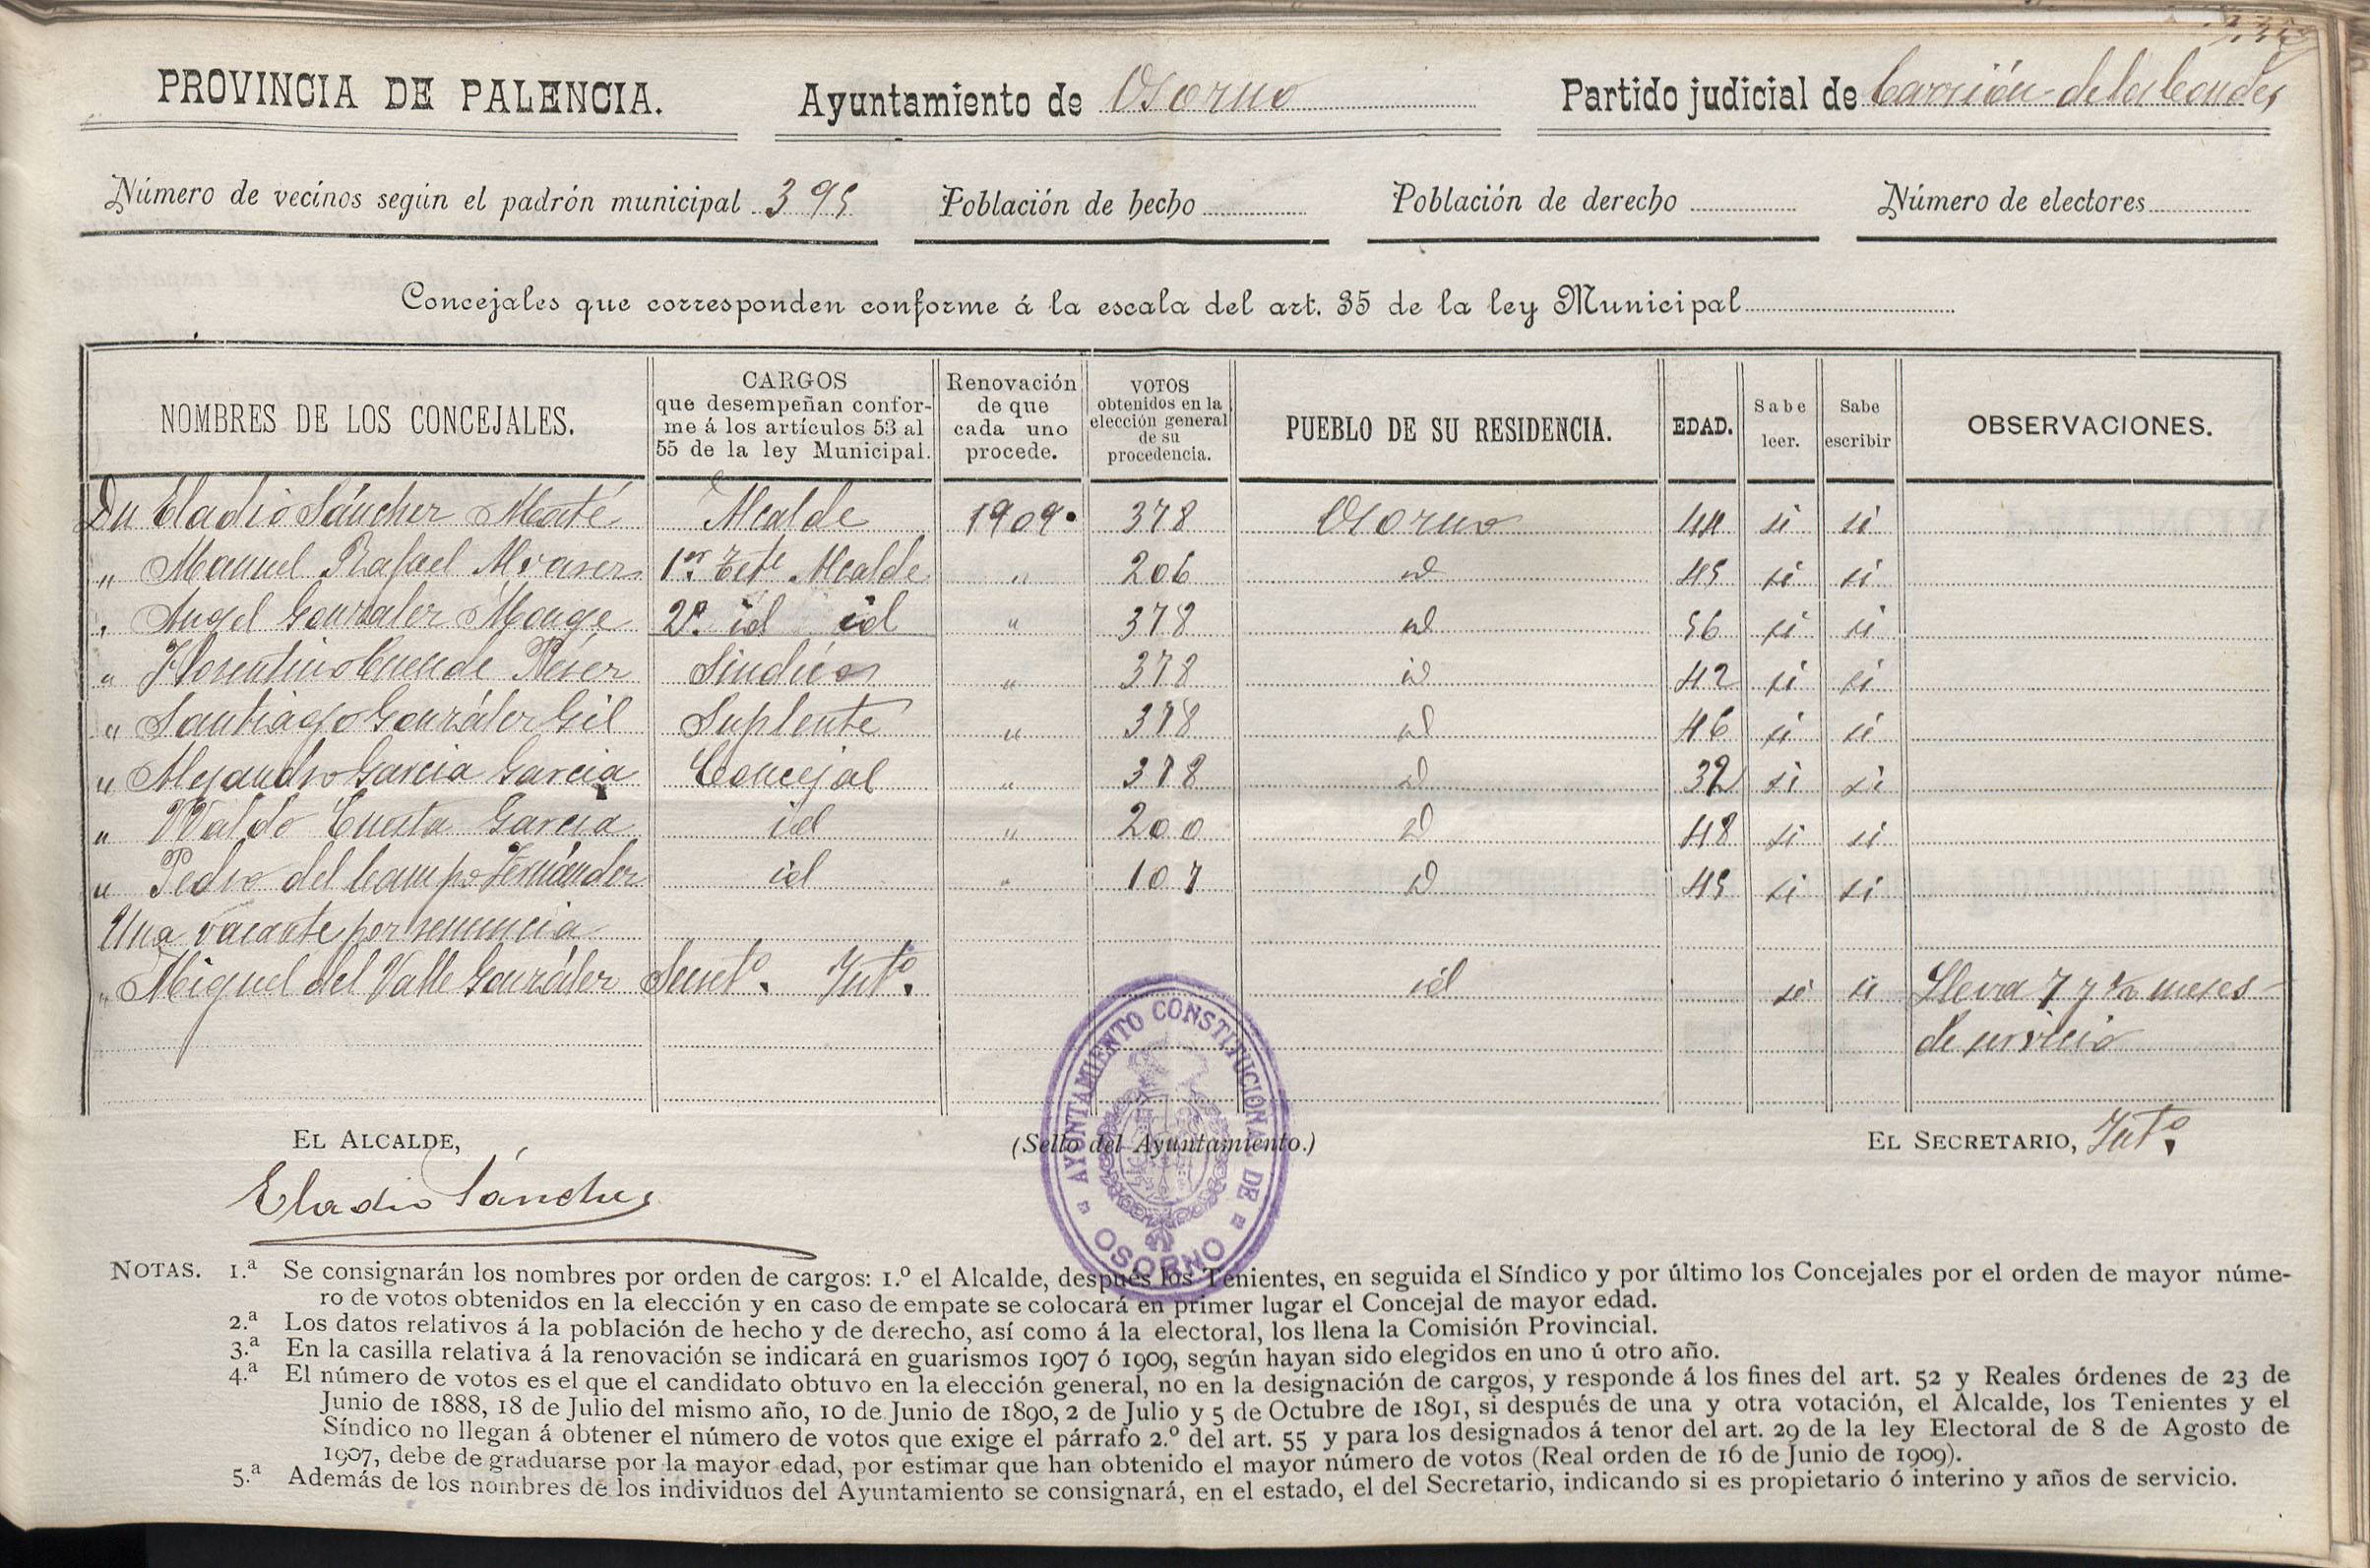 PROVINCIA DE PALENCIA. Ayuntamiento de Osorno Partido judicial de Carrión de los Condes
Número de vecinos según el padrón municipal 395 Población de hecho Población de derecho Número de electores
Concejales que corresponden conforme á la escala del art. 35 de la ley Municipal
NOMBRES DE LOS CONCEJALES. CARGOS que desempeñan confor-me á los artículos 53 al 55 de la ley Municipal. Renovación de que cada uno procede. VOTOS obtenidos en la elección general de su procedencia. PUEBLO DE SU RESIDENCIA. EDAD. Sabe leer. Sabe escribir OBSERVACIONES.
Dn Eladio Sánchez Maté Alcalde 1909. 378 Osorno 44 si si
" Manuel Rafael Alvarez 1er Tete Alcalde " 206 id 45 si si
" Angel Gonzalez Monge 2º id id " 378 id 56 si si
" Florentino Cuende Pérez Síndico " 378 id 42 si si
" Santiago González Gil Suplente " 378 id 46 si si
" Alejandro Garcia Garcia Concejal " 378 id 32 si si
" Waldo Cuesta Garcia id " 200 id 48 si si
" Pedro del Campo Fernández id " 107 id 45 si si
Una vacante por renuncia
" Miguel del Valle González Secretº. Intº. id si si Lleva 7 y ½ meses
de servicio
EL ALCALDE, (Sello del Ayuntamiento.) EL SECRETARIO, Intº.
Eladio Sánchez
AYUNTAMIENTO CONSTITUCIONAL DE
OSORNO
NOTAS. 1.ª Se consignarán los nombres por orden de cargos: 1.º el Alcalde, después los Tenientes, en seguida el Síndico y por último los Concejales por el orden de mayor núme-
ro de votos obtenidos en la elección y en caso de empate se colocará en primer lugar el Concejal de mayor edad.
2.ª Los datos relativos á la población de hecho y de derecho, así como á la electoral, los llena la Comisión Provincial.
3.ª En la casilla relativa á la renovación se indicará en guarismos 1907 ó 1909, según hayan sido elegidos en uno ú otro año.
4.ª El número de votos es el que el candidato obtuvo en la elección general, no en la designación de cargos, y responde á los fines del art. 52 y Reales órdenes de 23 de
Junio de 1888, 18 de Julio del mismo año, 10 de Junio de 1890, 2 de Julio y 5 de Octubre de 1891, si después de una y otra votación, el Alcalde, los Tenientes y el
Síndico no llegan á obtener el número de votos que exige el párrafo 2.º del art. 55 y para los designados á tenor del art. 29 de la ley Electoral de 8 de Agosto de
1907, debe de graduarse por la mayor edad, por estimar que han obtenido el mayor número de votos (Real orden de 16 de Junio de 1909).
5.ª Además de los nombres de los individuos del Ayuntamiento se consignará, en el estado, el del Secretario, indicando si es propietario ó interino y años de servicio.